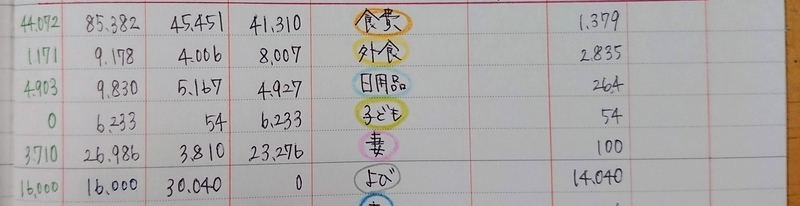 44.072 85.382 45.451 41.310 食費 1.379
1171 9.178 4.006 8,007 外食 2.835
4.903 9.830 5.167 4.927 日用品 264
0 6.233 54 6.233 子ども 54
3.710 26.986 3.810 23.276 妻 100
16,000 16.000 30.040 0 よび 14.040